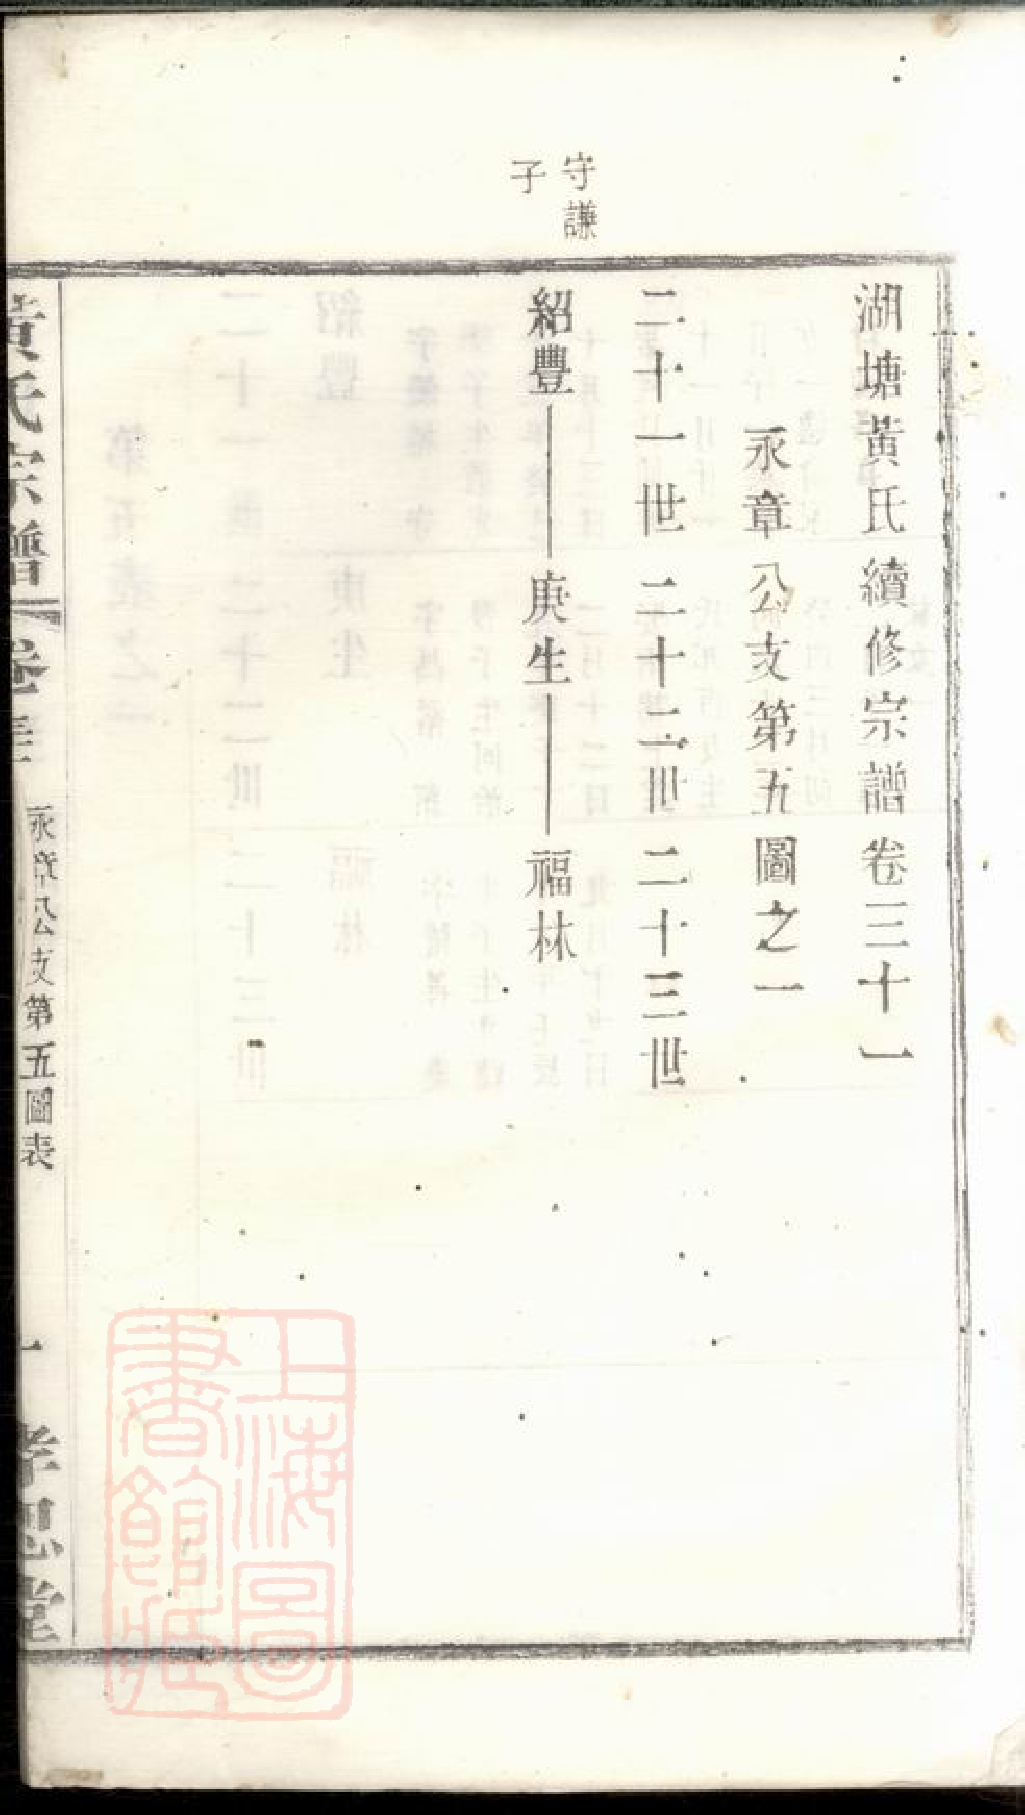 湖塘黃氏續修宗譜卷三十一
永章公支第五圖之一
二十一世 二十二世 二十三世
守謙
子
紹豐 庚生 福林
黃氏宗譜 卷三十一 永章公支第五圖表 一 孝思堂
上海圖
書館藏